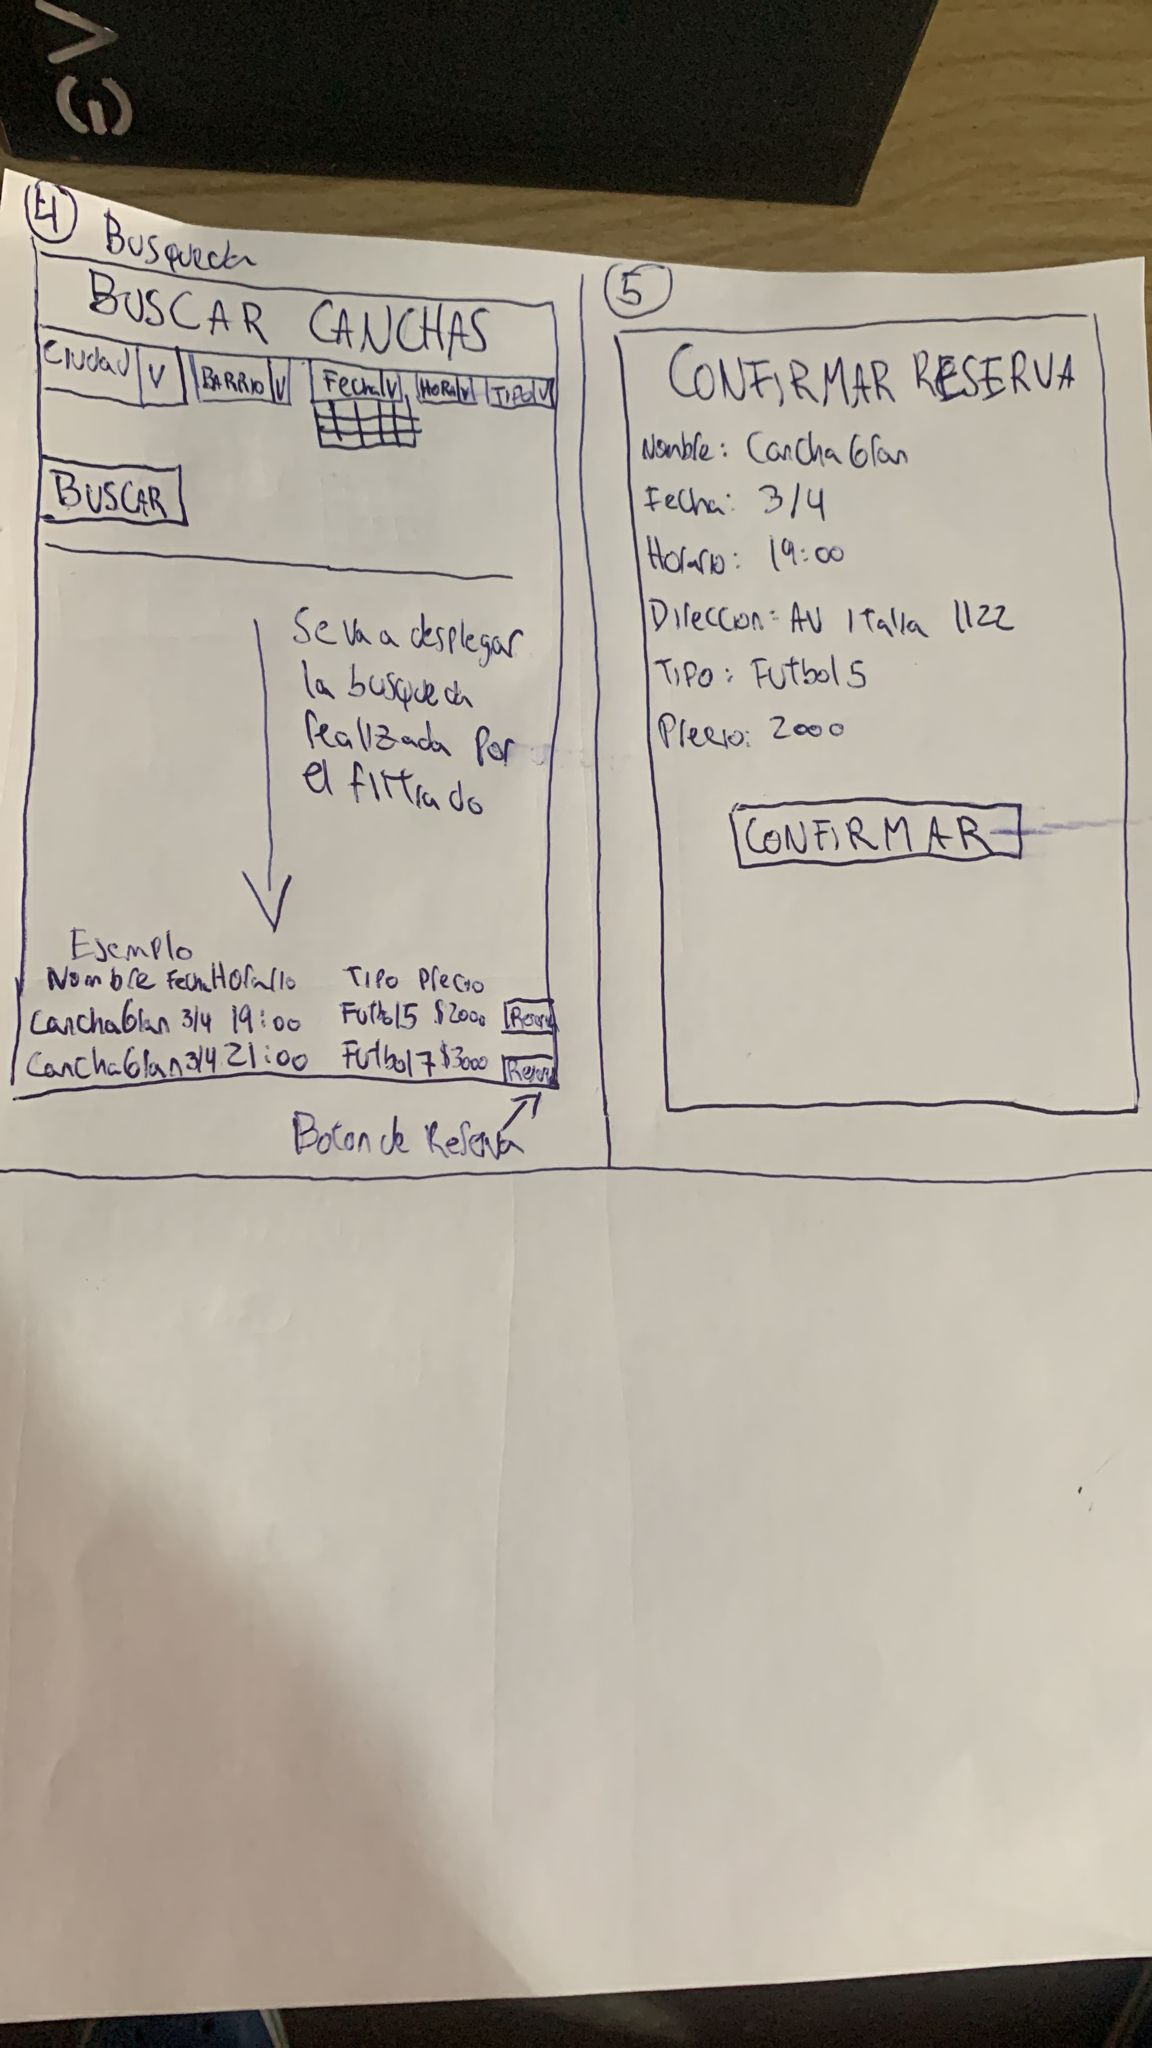 4 Busqueda
BUSCAR CANCHAS
Ciudad V BARRIO V Fecha V HORA V TIPO V
BUSCAR
Se va a desplegar
la busqueda
realizada por
el filtrado
Ejemplo
Nombre Fecha Horario Tipo Precio
Cancha Gian 3/4 19:00 Futbol 5 $2000
Cancha Gian 3/4 21:00 Futbol 7 $3000
Boton de Reserva
5
CONFIRMAR RESERVA
Nombre: Cancha Gian
Fecha: 3/4
Horario: 19:00
Direccion: AV Italia 1122
Tipo: Futbol 5
Precio: 2000
CONFIRMAR